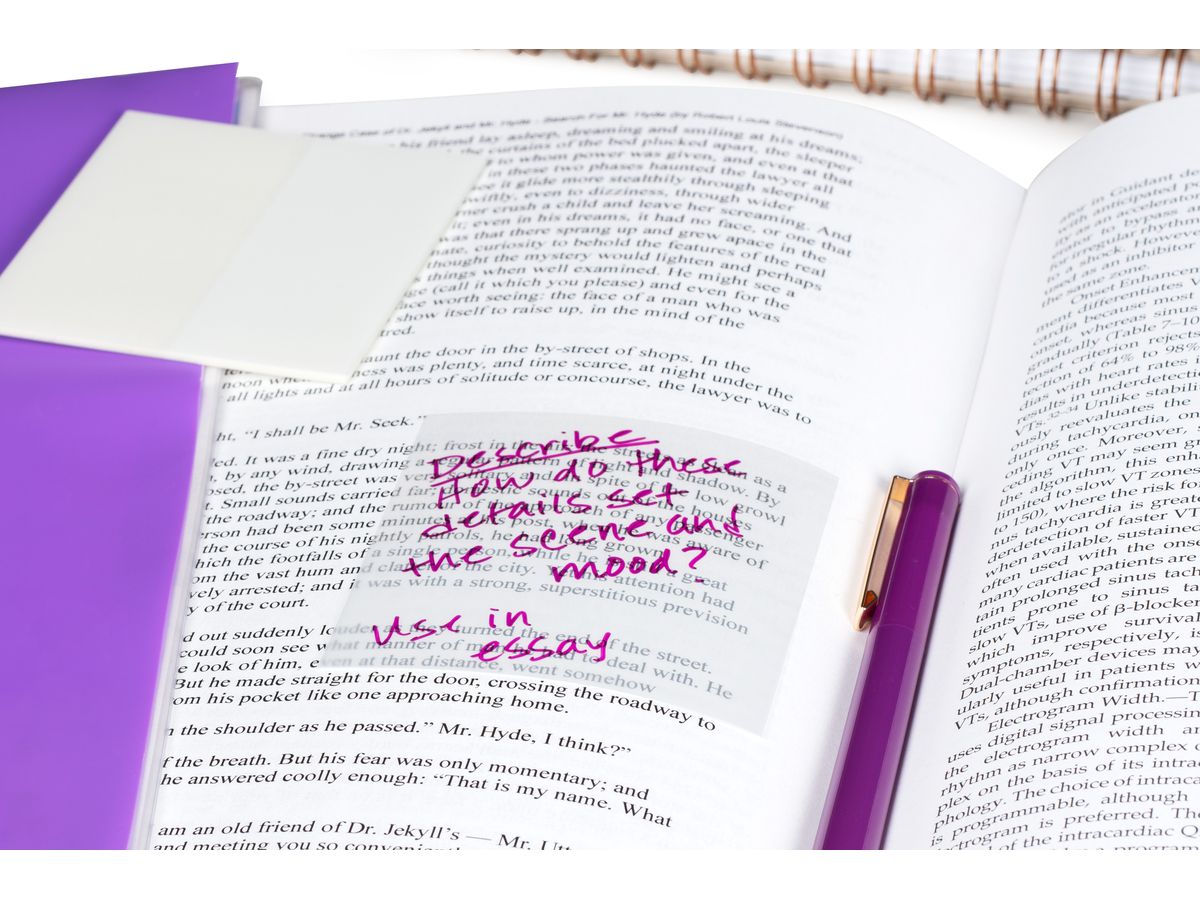 Change Case of Dr. Jekyll and Mr. Hyde - Search For Mr. Hyde (by Robert Louis Stevenson)
his friend lay asleep, dreaming and smiling at his dreams;
the curtains of the bed plucked apart, the sleeper
to whom power was given, and even at that
in these two phases haunted the lawyer all
it glide more stealthily through sleeping
swiftly, even to dizziness, through wider
crush a child and leave her screaming. And
it; even in his dreams, it had no face, or one that
was that there sprang up and grew apace in the
curiosity to behold the features of the real
thought the mystery would lighten and perhaps
things when well examined. He might see a
(call it which you please) and even for the
face worth seeing: the face of a man who was
show itself to raise up, in the mind of the
the door in the by-street of shops. In the
noon when was plenty, and time scarce, at night under the
all lights and at all hours of solitude or concourse, the lawyer was to
"I shall be Mr. Seek."
It was a fine dry night; frost in the as a
by any wind, drawing a and shadow. By
the by-street was very and in spite of the low growl
Small sounds carried far; domestic sounds out of the houses
the roadway; and the rumour of the approach of any passenger
had been some minutes at his post, when he was aware of
the course of his nightly patrols, he had long grown
which the footfalls of a single person, while he is a great
the vast hum and clatter of the city. attention had
arrested; and it was with a strong, superstitious prevision
of the court.
out suddenly louder as they turned the end of the street.
could soon see what manner of man he had to deal with. He
look of him, even at that distance, went somehow
But he made straight for the door, crossing the roadway to
his pocket like one approaching home.
the shoulder as he passed." Mr. Hyde, I think?"
the breath. But his fear was only momentary; and
he answered coolly enough: "That is my name. What
am an old friend of Dr. Jekyll's — Mr.
and meeting you so
Describe
How do these
details set
the scene and
mood?
Use in
essay
in Guidant
with anticipated
ity as an accelerator
to bypass
for irregular rhythm
to a shock. However
used as an inhibitor
the same zone.
Onset
ment differentiates
cardia because most
onset, whereas sinus
gradually (Table 7–10
onset criterion rejects
tection of 64% to 98%
dias with heart rates
results in underdetection
VTs.32–34 Unlike
ously reevaluates the
during tachycardia,
only once. Moreover,
ceding VT may seem
the algorithm, this
limited to slow VT zones
to 150), where the risk for
nus tachycardia is
derdetection of faster VT
when available,
often used with the onset
many cardiac patients are
tain prolonged sinus
tients prone to sinus
slow VTs, use of β-blocker
which improve
symptoms, respectively,
Dual-chamber devices may
ularly useful in patients
VTs, although
Electrogram Width.—
uses digital signal
the electrogram width
rhythm as narrow complex
plex on the basis of its
phology. The choice of
is programmable, although
is preferred.
of the intracardiac